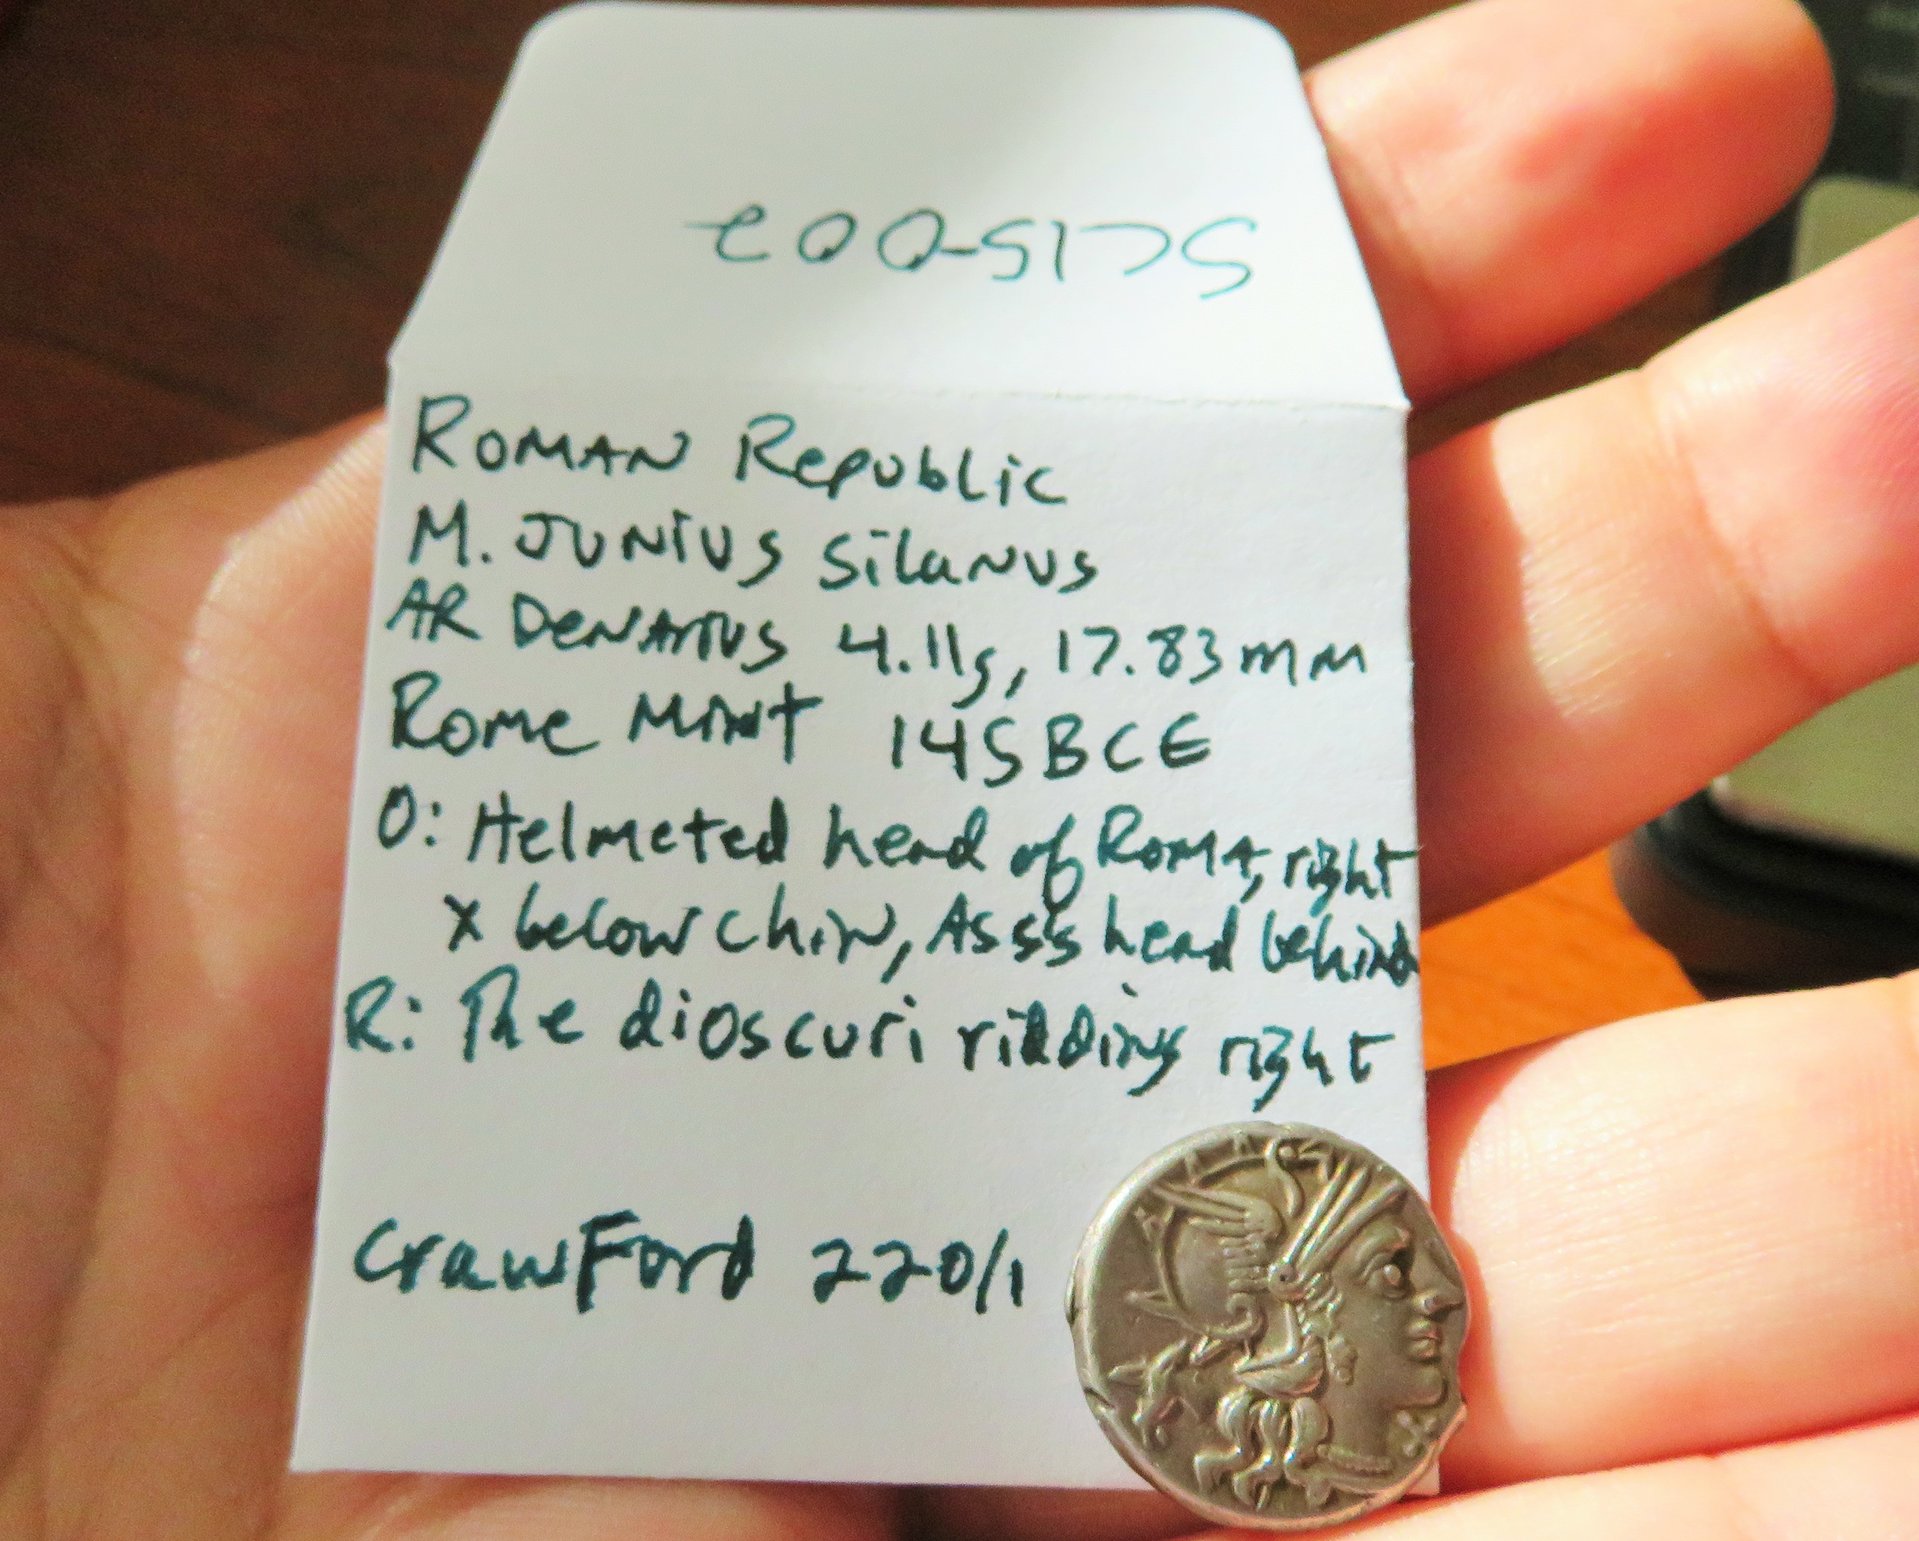 SC15-002
Roman Republic
M. Junius Silanus
AR Denarius 4.11g, 17.83mm
Rome Mint 145 BCE
O: Helmeted head of Roma, right
x below chin, Ass's head behind
R: The dioscuri ridding right
Crawford 220/1